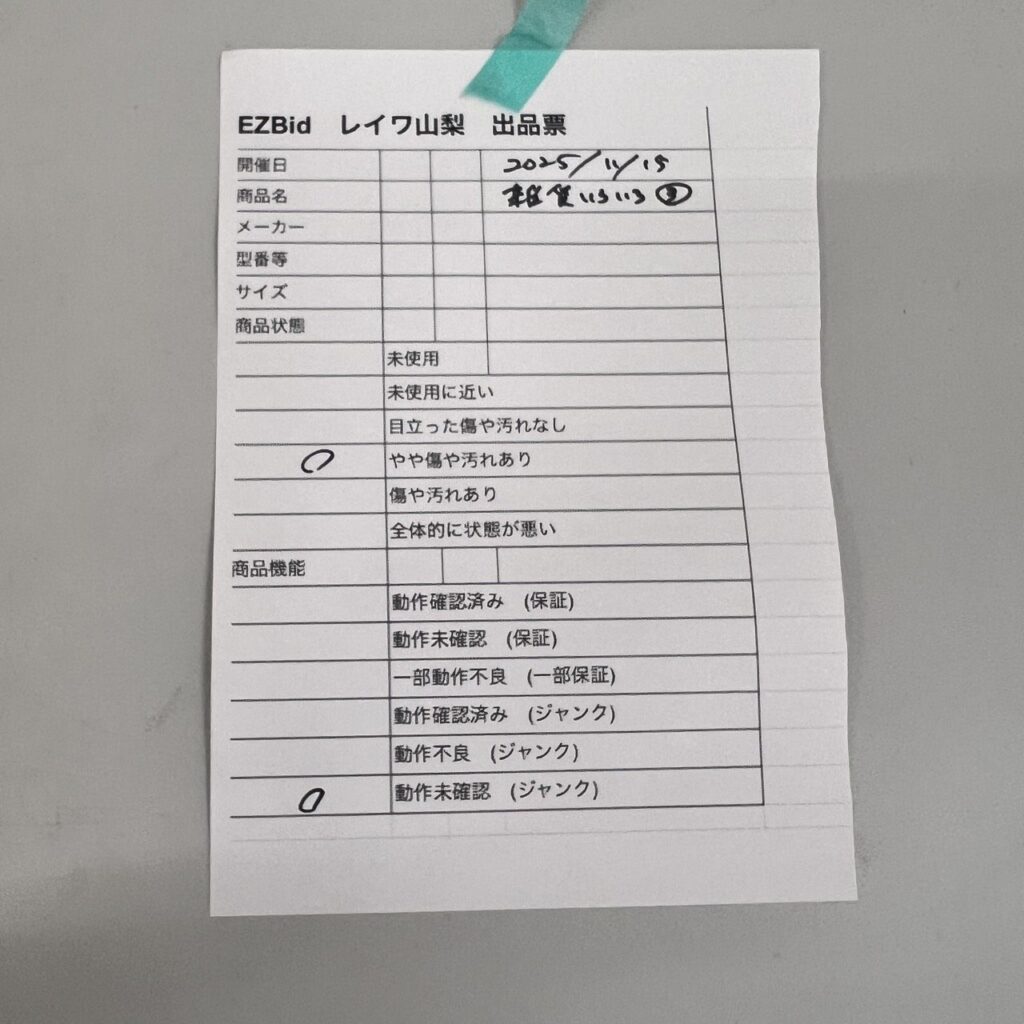 EZBid レイワ山梨 出品票
開催日 2025/11/15
商品名 雑貨いろいろ ③
メーカー
型番等
サイズ
商品状態
未使用
未使用に近い
目立った傷や汚れなし
○ やや傷や汚れあり
傷や汚れあり
全体的に状態が悪い
商品機能
動作確認済み (保証)
動作未確認 (保証)
一部動作不良 (一部保証)
動作確認済み (ジャンク)
動作不良 (ジャンク)
○ 動作未確認 (ジャンク)